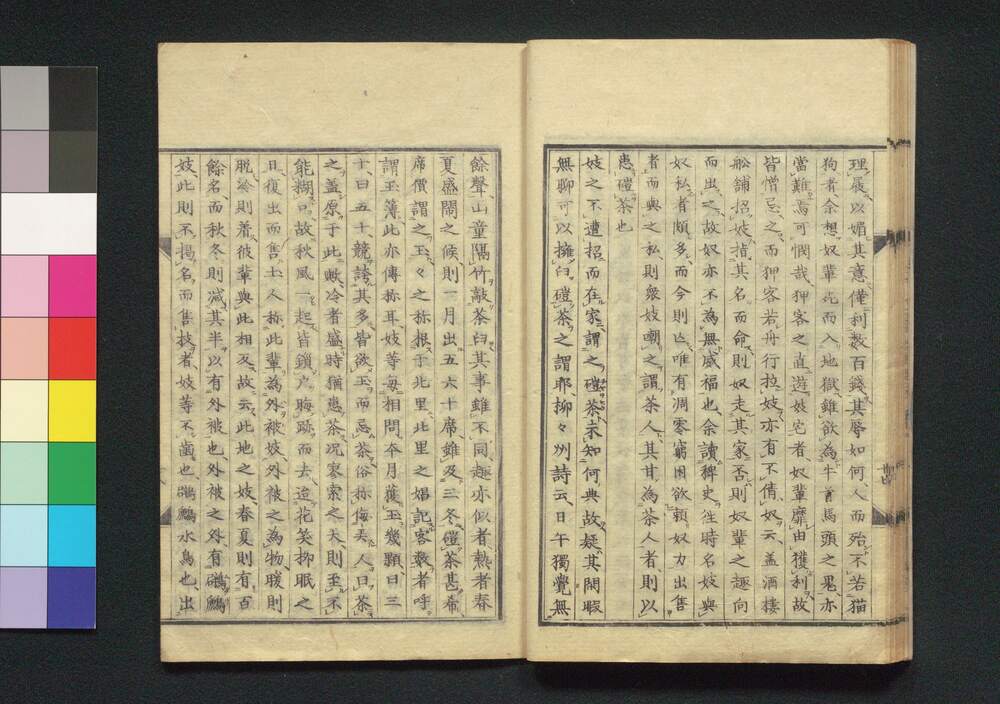 理展以媚其意僅利数百錢其辱如何人而殆不若猫
狗者余想奴輩死而入地獄雖欲為牛首馬頭之鬼亦
當難焉可憫哉狎客之直遊妓宅者奴輩靡由獲利故
皆憎忌之而狎客若舟行拉妓亦有不倩奴云蓋酒樓
舩舗招妓指其名而命則奴走其家否則奴輩之趣向
而出之故奴亦不為無威福也余讀稗史徃時名妓與
奴私者頗多而今則亾唯有凋零窮困欲頼奴力出售
者而與之私則衆妓嘲之謂茶人其甘為茶人者則以
患磑茶也
妓之不遭招而在家謂之磑茶未知何典故疑其閑暇
無聊可以擁臼磑茶之謂耶柳々州詩云日午獨覺無
餘聲山童隔竹敲茶臼其事雖不同趣亦似者熱者春
夏盛鬧之候則一月出五六十席雖及三冬磑茶甚希
席價謂之玉々之称根于北里北里之娼記客数者呼
謂玉簿此亦傳称耳妓等毎相問夲月獲玉幾顆曰三
十曰五十競誇其多皆欲玉而忌茶俗称侮夫人曰茶
之蓋原于此歟冷者盛時猶患茶况寥索之天則玉不
能糊口故秋風一起皆鎖户晦跡而去迨花笑抑眠之
日復出而售士人称此輩為外被妓外被之為物暖則
脱冷則着彼輩與此相反故云此地之妓春夏則有百
餘名而秋冬則減其半以有外被也外被之外有鸊鷉
妓此則不揚名而售技者妓等不齒也鸊鷉水鳥也出